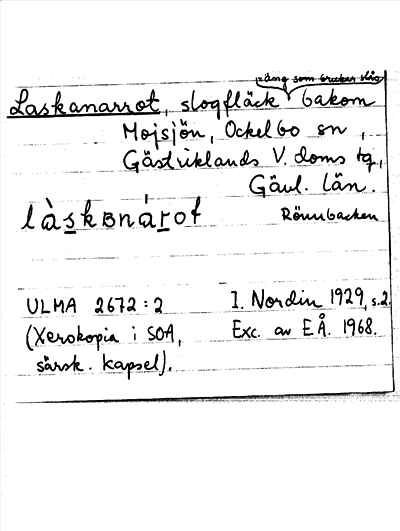 äng som brukar slås
Laskanarrot, slogfläck bakom
Mojsjön, Ockelbo sn,
Gästriklands V. doms tg,
Gävl. län.
làskɐnárot Rönnbacken
ULMA 2672:2 I. Nordin 1929, s.2.
(Xerokopia i SOA, Exc. av E.Å. 1968.
särsk. kapsel).